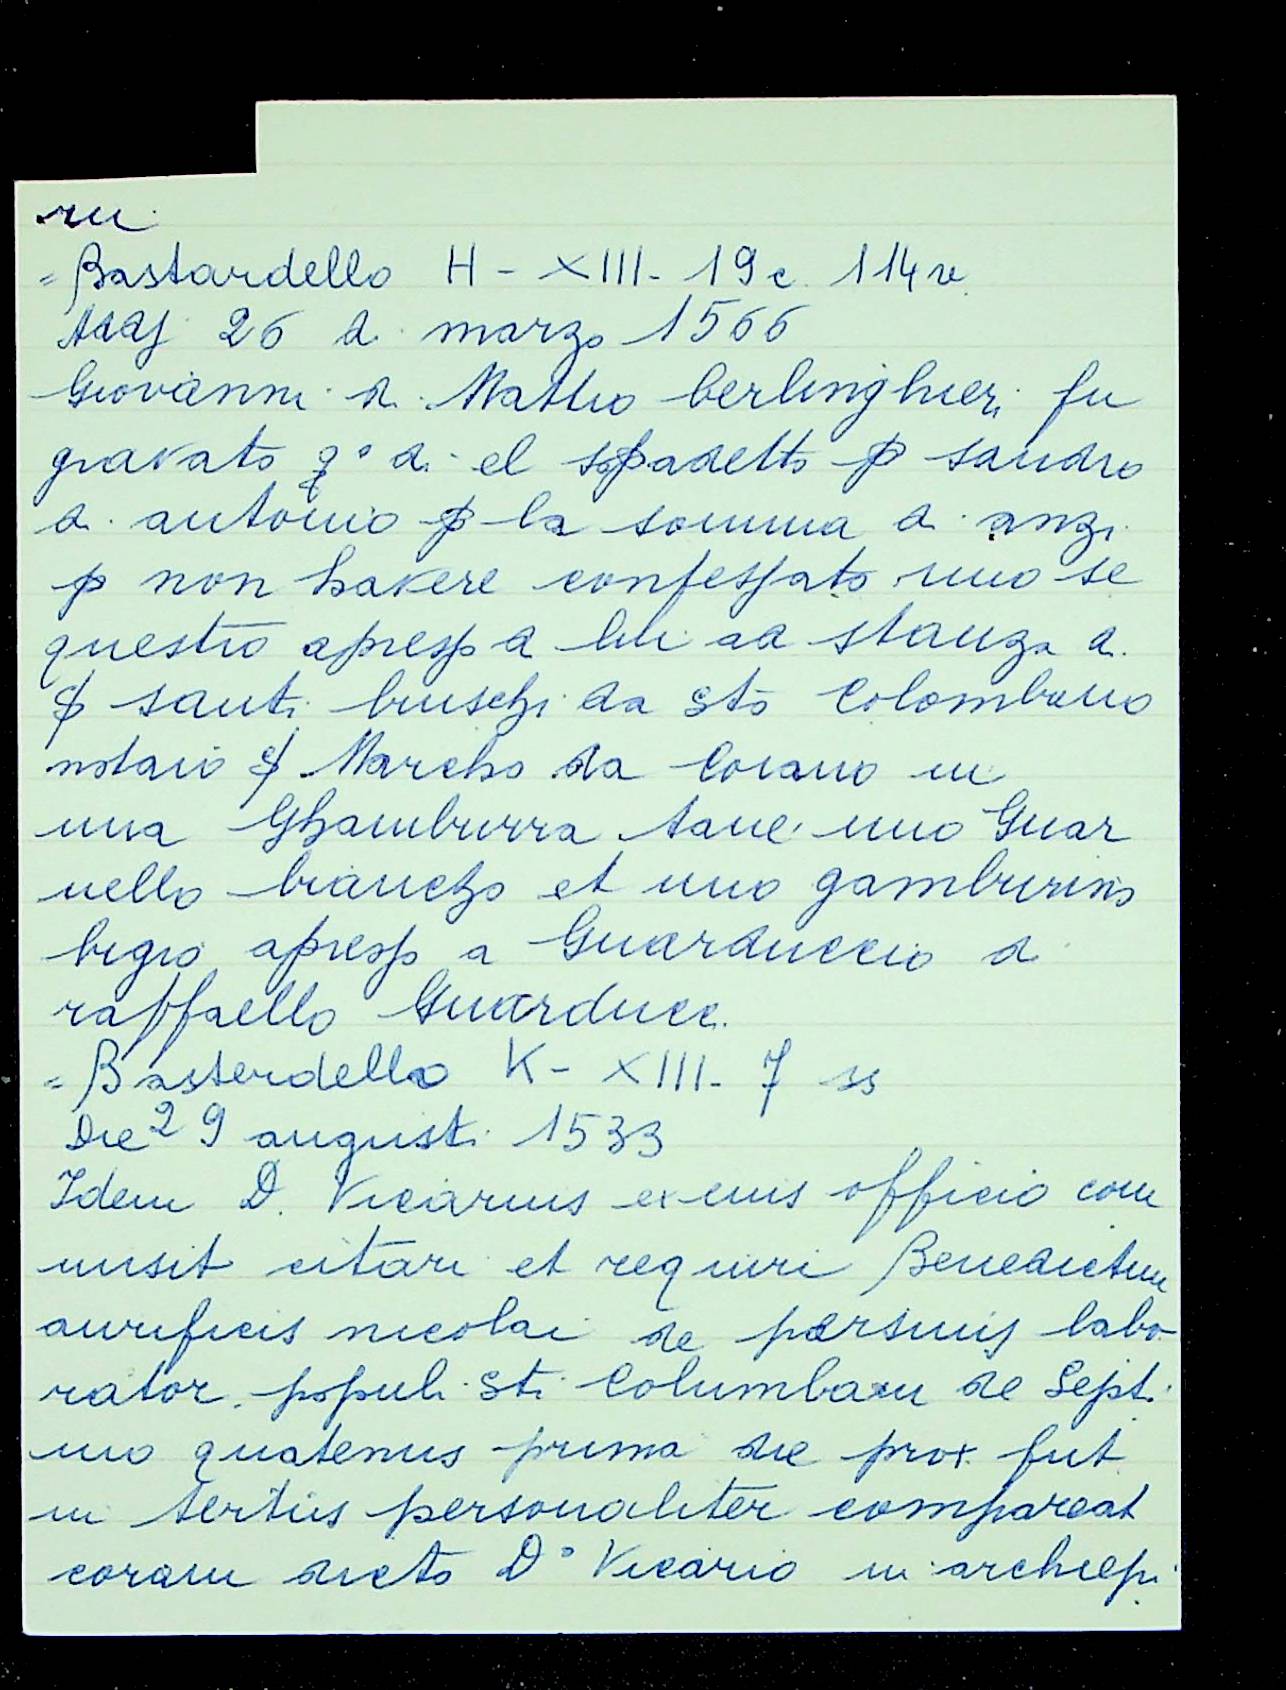 ni
= Bastardello H - XIII - 19 c. 114 v.
Adj 26 di marzo 1566
Giovanni di Matteo berlinghieri fu
gravato q° di el sopadetto p sandro
di antonio p la somma di anzi
p non havere confessato uno se
questro apresso a lui ad stanza di
ꝭ santi bruschi da Sto Colombano
notaio ꝭ Marcho da Coiano in
una Ghamburra tane uno Guar
nello biancho et uno gamburino
bigio apresso a Guarduccio di
raffaello Guarducci.
= Bastardello K - XIII - 7 ss
Die 29 augusti 1533
Idem D. Vicarius ex eius officio com
misit citari et requiri Benedictum
aurificis nicolai de persinis labo
rator. populi Sti Columbani de Septi
mo quatenus prima die prox. fut
in tertiis personaliter compareat
coram dicto D° Vicario in archiepi